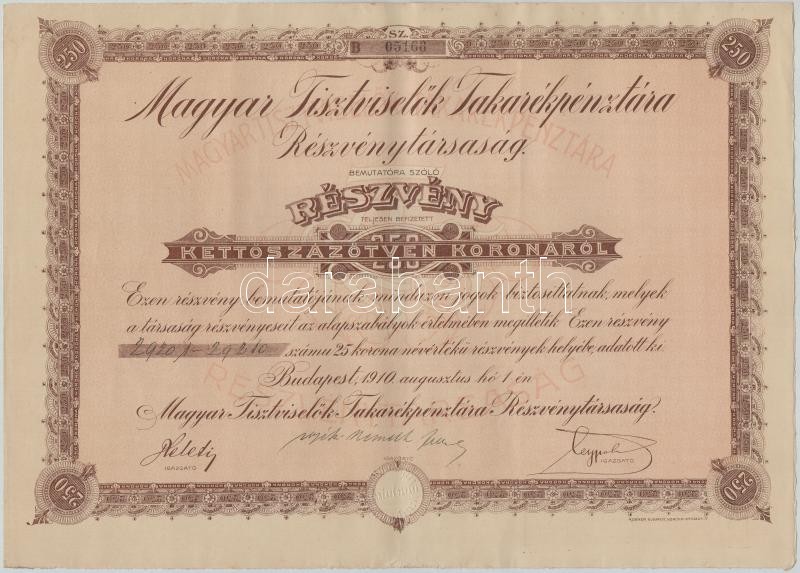 SZ.
250 B 05168 250
Magyar Tisztviselők Takarékpénztára
Részvénytársaság.
MAGYAR TISZTVISELŐK TAKARÉKPÉNZTÁRA
BEMUTATÓRA SZÓLÓ
RÉSZVÉNY
TELJESEN BEFIZETETT
250
KETTŐSZÁZÖTVEN KORONÁRÓL
darabanth
Ezen részvény bemutatójának mindazon jogok biztosíttatnak, melyek
a társaság részvényeseit az alapszabályok értelmében megilletik. Ezen részvény
29201-29210 számu 25 korona névértékű részvények helyébe adatott ki.
RÉSZVÉNYTÁRSASÁG
Budapest, 1910. augusztus hó 1-én
Magyar Tisztviselők Takarékpénztára Részvénytársaság.
IGAZGATÓ IGAZGATÓ IGAZGATÓ
250 250